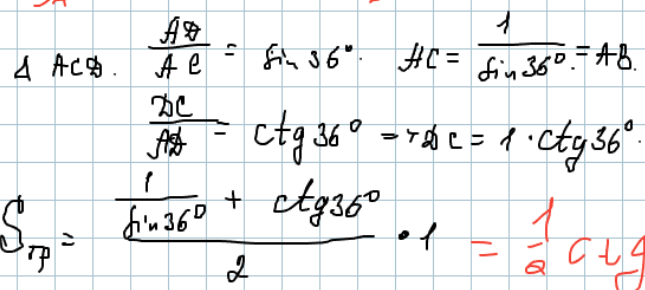 Δ ACD. AD/AC = sin 36°. AC = 1/sin 36°. = AB.
DC/AD = ctg 36° → DC = 1 · ctg 36°.
Sтр = (1/sin 36° + ctg 36°)/2 · 1 = 1/2 ctg